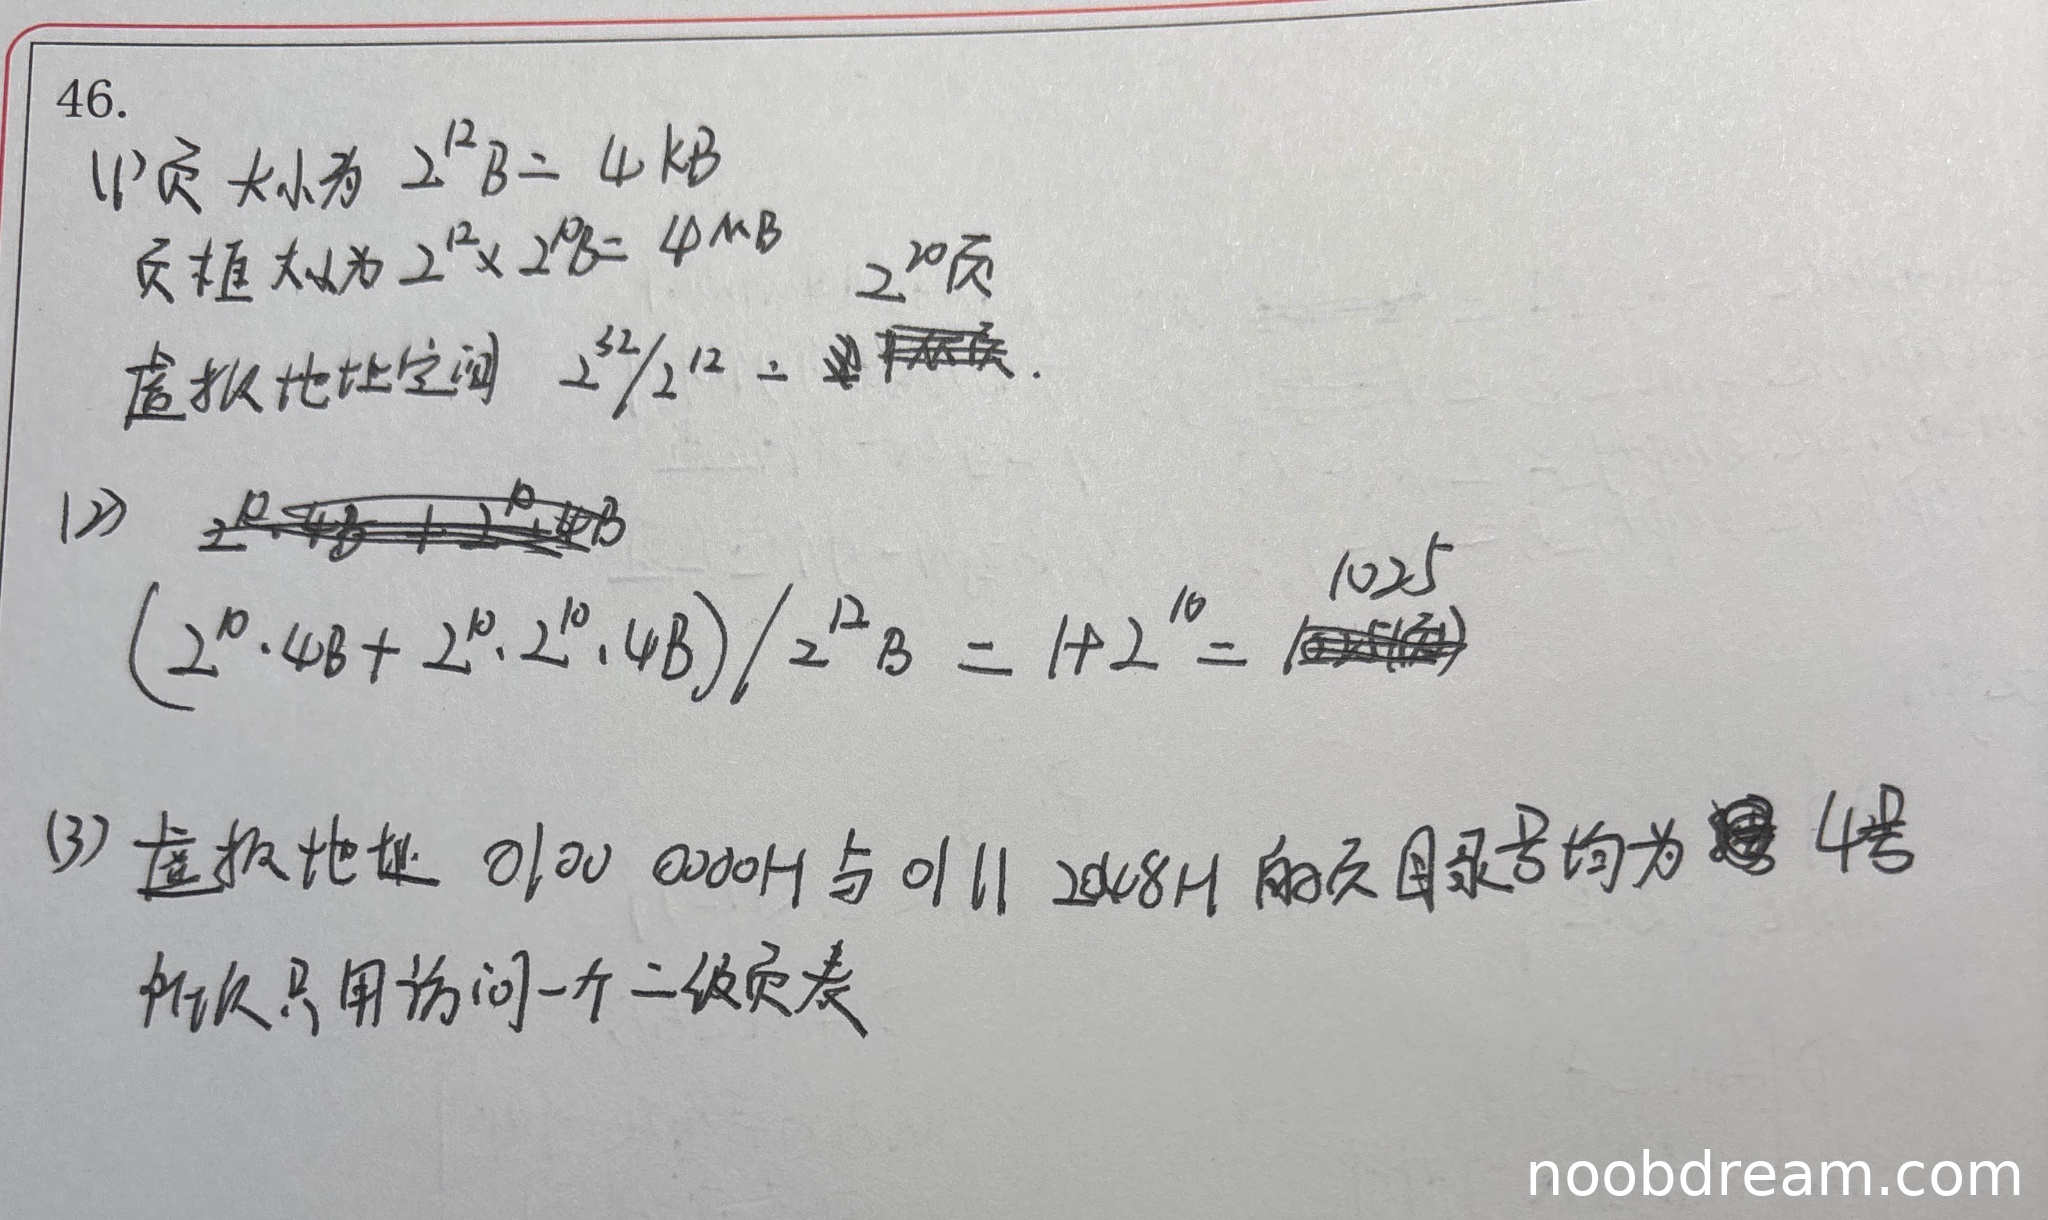 46.
(1)页大小为 2^12B = 4KB
页框大小为 2^12 × 2^10B = 4MB
2^20页
虚拟地址空间 2^32/2^12 = .
(2)
2^10 · 4B + 2^10 · 4B
1025
(2^10·4B + 2^10·2^10·4B)/2^12B = 1+2^10 = 1025(页)
(3)虚拟地址 0100 0000H 与 0111 2048H 的页目录号均为 4号
所以只用访问一个二级页表
noobdream.com